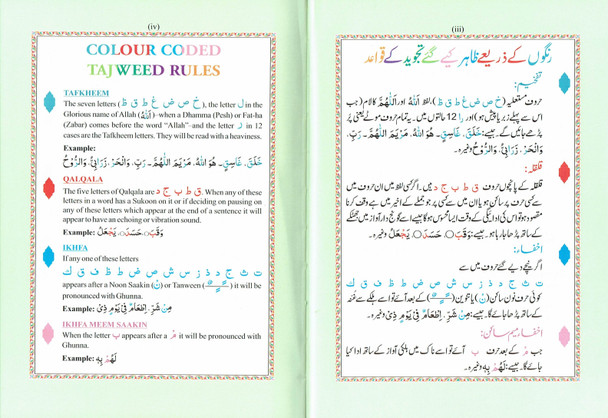 (iv)
COLOUR CODED
TAJWEED RULES
TAFKHEEM
The seven letters ( خ ص ض غ ط ق ظ ), the letter ل in the
Glorious name of Allah (اللّٰهُ) -when a Dhamma (Pesh) or Fat-ha
(Zabar) comes before the word "Allah"-and the letter ر in 12
cases are the Tafkheem letters. They will be read with a heaviness.
Example:
خَلَقَ، غَاسِقٍ، هُوَ اللّٰهُ، مَرْيَمَ اللّٰهُمَّ، رَبِّ، وَانْحَرْ، زَرَابِیُّ، وَالرُّوْحُ
QALQALA
The five letters of Qalqala are ق ط ب ج د. When any of these
letters in a word has a Sukoon on it or if deciding on pausing on
any of these letters which appear at the end of a sentence it will
appear to have an echoing or vibration sound.
Example: وَقَبَ، حَسَدَ، يَجْعَلُ
IKHFA
If any one of these letters
ت ث ج د ذ ز س ش ص ض ط ظ ف ق ك
appears after a Noon Saakin (نْ) or Tanween ( ًٌٍ ) it will be
pronounced with Ghunna.
Example: مِنْ شَرِّ، اِطْعَامٌ فِیْ یَوْمٍ ذِیْ
IKHFA MEEM SAAKIN
When the letter ب appears after a مْ it will be pronounced with
Ghunna.
Example: لَهُمْ بِهٖ
(iii)
رنگوں کے ذریعے ظاہر کیے گئے تجوید کے قواعد
تفخیم:
حروف مستعلیہ (خ ص ض غ ط ق ظ)، لفظ اللّٰهُ اور اَللّٰهُمَّ کا لام (جب
اس سے پہلے زبر یا پیش ہو) اور را 12 حالتوں میں۔ یہ تمام حروف موٹے یعنی پُر
پڑھے جائیں گے۔ جیسے: خَلَقَ، غَاسِقٍ، هُوَ اللّٰهُ، مَرْيَمَ اللّٰهُمَّ، رَبِّ،
وَانْحَرْ، زَرَابِیُّ، وَالرُّوْحُ وغیرہ۔
قلقلہ:
قلقلہ کے پانچوں حروف ق ط ب ج د ہیں۔ اگر کسی لفظ میں ان حروف میں
سے کسی حرف پر ساکن ہو یا ان میں سے کسی پر جو جملے کے اخیر میں ہے وقف کرنا
مقصود ہو تو اس کی ادائیگی کے وقت ایسا محسوس ہوگا جیسے اسے گونج دار آواز میں جھٹکے
کے ساتھ پڑھا جا رہا ہو۔ جیسے: وَقَبَ، حَسَدَ، يَجْعَلُ وغیرہ۔
اخفاء:
اگر نیچے دیے گئے حروف میں سے
ت ث ج د ذ ز س ش ص ض ط ظ ف ق ك
کوئی حرف نون ساکن (نْ) یا تنوین ( ًٌٍ ) کے بعد آئے تو اسے ہلکے سے غنہ
کے ساتھ پڑھا جائے گا۔ جیسے: مِنْ شَرِّ، اِطْعَامٌ فِیْ یَوْمٍ ذِیْ وغیرہ۔
اخفاء میم ساکن:
جب مْ کے بعد حرف ب آئے تو اسے ناک میں ہلکی آواز کے ساتھ ادا کیا
جائے گا۔ جیسے: لَهُمْ بِهٖ وغیرہ۔